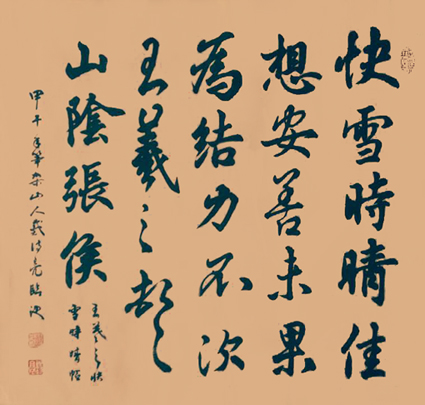 快雪時晴佳
想安善未果
為結力不次
王羲之頓首
山陰張侯
王羲之快
雪時晴帖
甲午年筆架山人